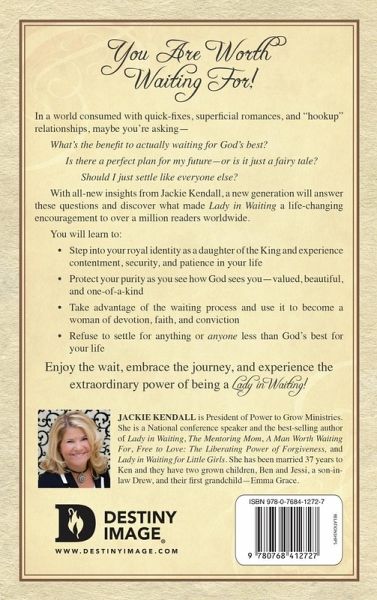 You Are Worth
Waiting For!
In a world consumed with quick-fixes, superficial romances, and “hookup”
relationships, maybe you’re asking—
What’s the benefit to actually waiting for God’s best?
Is there a perfect plan for my future—or is it just a fairy tale?
Should I just settle like everyone else?
With all-new insights from Jackie Kendall, a new generation will answer
these questions and discover what made Lady in Waiting a life-changing
encouragement to over a million readers worldwide.
You will learn to:
• Step into your royal identity as a daughter of the King and experience
contentment, security, and patience in your life
• Protect your purity as you see how God sees you—valued, beautiful,
and one-of-a-kind
• Take advantage of the waiting process and use it to become a
woman of devotion, faith, and conviction
• Refuse to settle for anything or anyone less than God’s best for
your life
Enjoy the wait, embrace the journey, and experience the
extraordinary power of being a Lady in Waiting!
JACKIE KENDALL is President of Power to Grow Ministries.
She is a National conference speaker and the best-selling author
of Lady in Waiting, The Mentoring Mom, A Man Worth Waiting
For, Free to Love: The Liberating Power of Forgiveness, and
Lady in Waiting for Little Girls. She has been married 37 years to
Ken and they have two grown children, Ben and Jessi, a son-in-
law Drew, and their first grandchild—Emma Grace.
DESTINY
IMAGE®
WWW.DESTINYIMAGE.COM
ISBN 978-0-7684-1272-7
9 780768 412727
RELATIONSHIPS